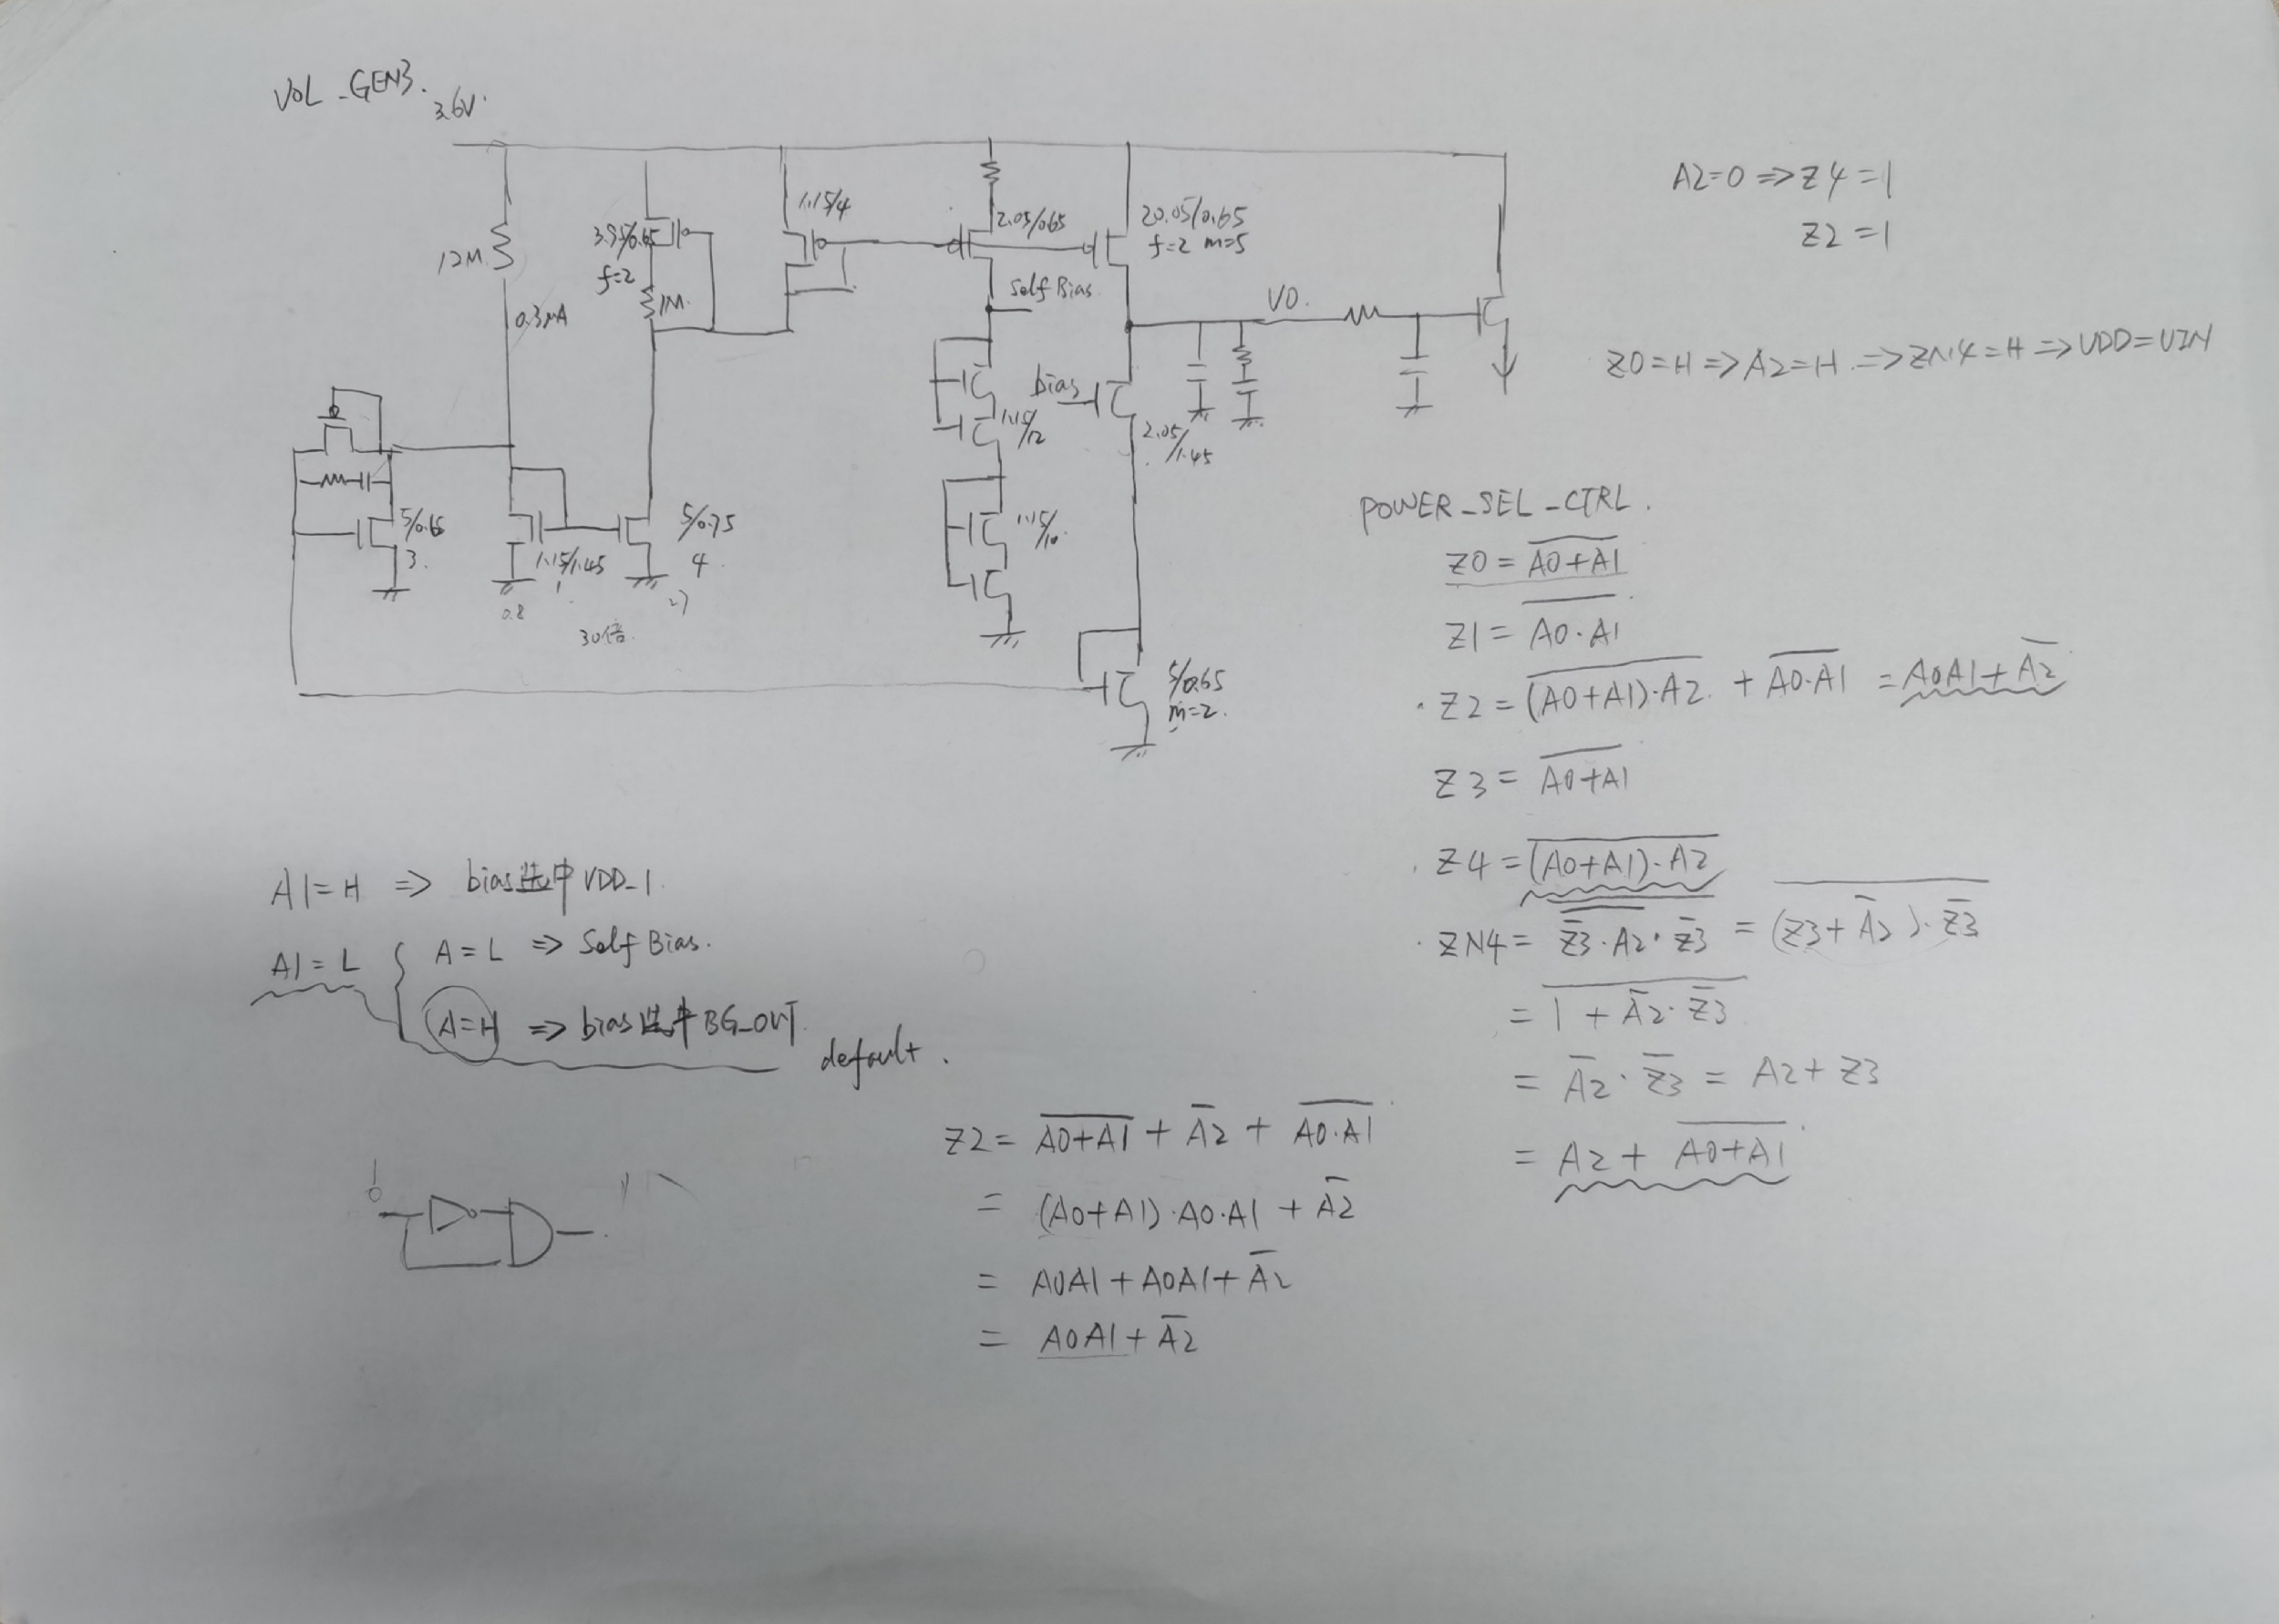 VOL_GEN3.
3.6V.
12M.
0.3μA
3.95/0.65
f=2
1M.
1.15/4
2.05/0.65
20.05/0.65
f=2 m=5
Self Bias.
V0.
bias
1.15/12
2.05/1.45
5/0.65
3.
1.15/1.45
1
5/0.75
4
0.8
27
30倍.
1.15/10.
5/0.65
m=2.
A2=0 => Z4=1
Z2=1
Z0=H => A2=H => ZN4=H => VDD=VIN
POWER_SEL_CTRL.
Z0 = \overline{A0+A1}
Z1 = \overline{A0·A1}
·Z2 = \overline{\overline{(A0+A1)·A2} + \overline{A0·A1}} = A0A1+\overline{A2}
Z3 = \overline{A0+A1}
·Z4 = \overline{(A0+A1)·A2}
·ZN4 = \overline{\overline{\overline{Z3}·A2}·\overline{Z3}} = \overline{(Z3+\overline{A2})·\overline{Z3}}
= \overline{1+\overline{A2}·\overline{Z3}}
= \overline{A2}·\overline{Z3} = A2+Z3
= A2+\overline{A0+A1}
A1=H => bias选中VDD_1.
A1=L { A=L => Self Bias.
A=H => bias选中BG_OUT
default.
Z2= \overline{A0+A1} + \overline{A2} + \overline{A0·A1}
= (A0+A1)·A0·A1 + \overline{A2}
= A0A1+A0A1+\overline{A2}
= A0A1+\overline{A2}